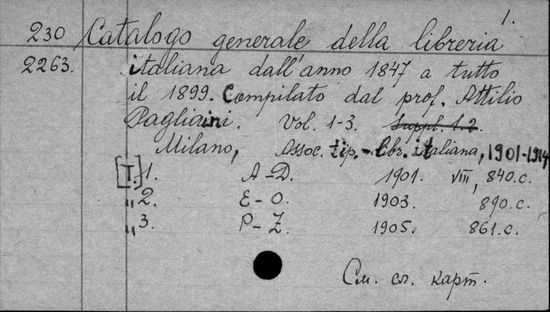 1.
230 Catalogo generale della libreria
2263. italiana dall'anno 1847 a tutto
il 1899. Compilato dal prof. Attilio
Pagliaini. Vol. 1-3. Suppl. 1.2.
Milano, Assoc. tip.-libr. italiana, 1901-1914
[T.]1. A-D. 1901. VIII, 840.c.
„2. E-O. 1903. 890.c.
„3. P-Z. 1905. 861.c.
См. сл. карт.